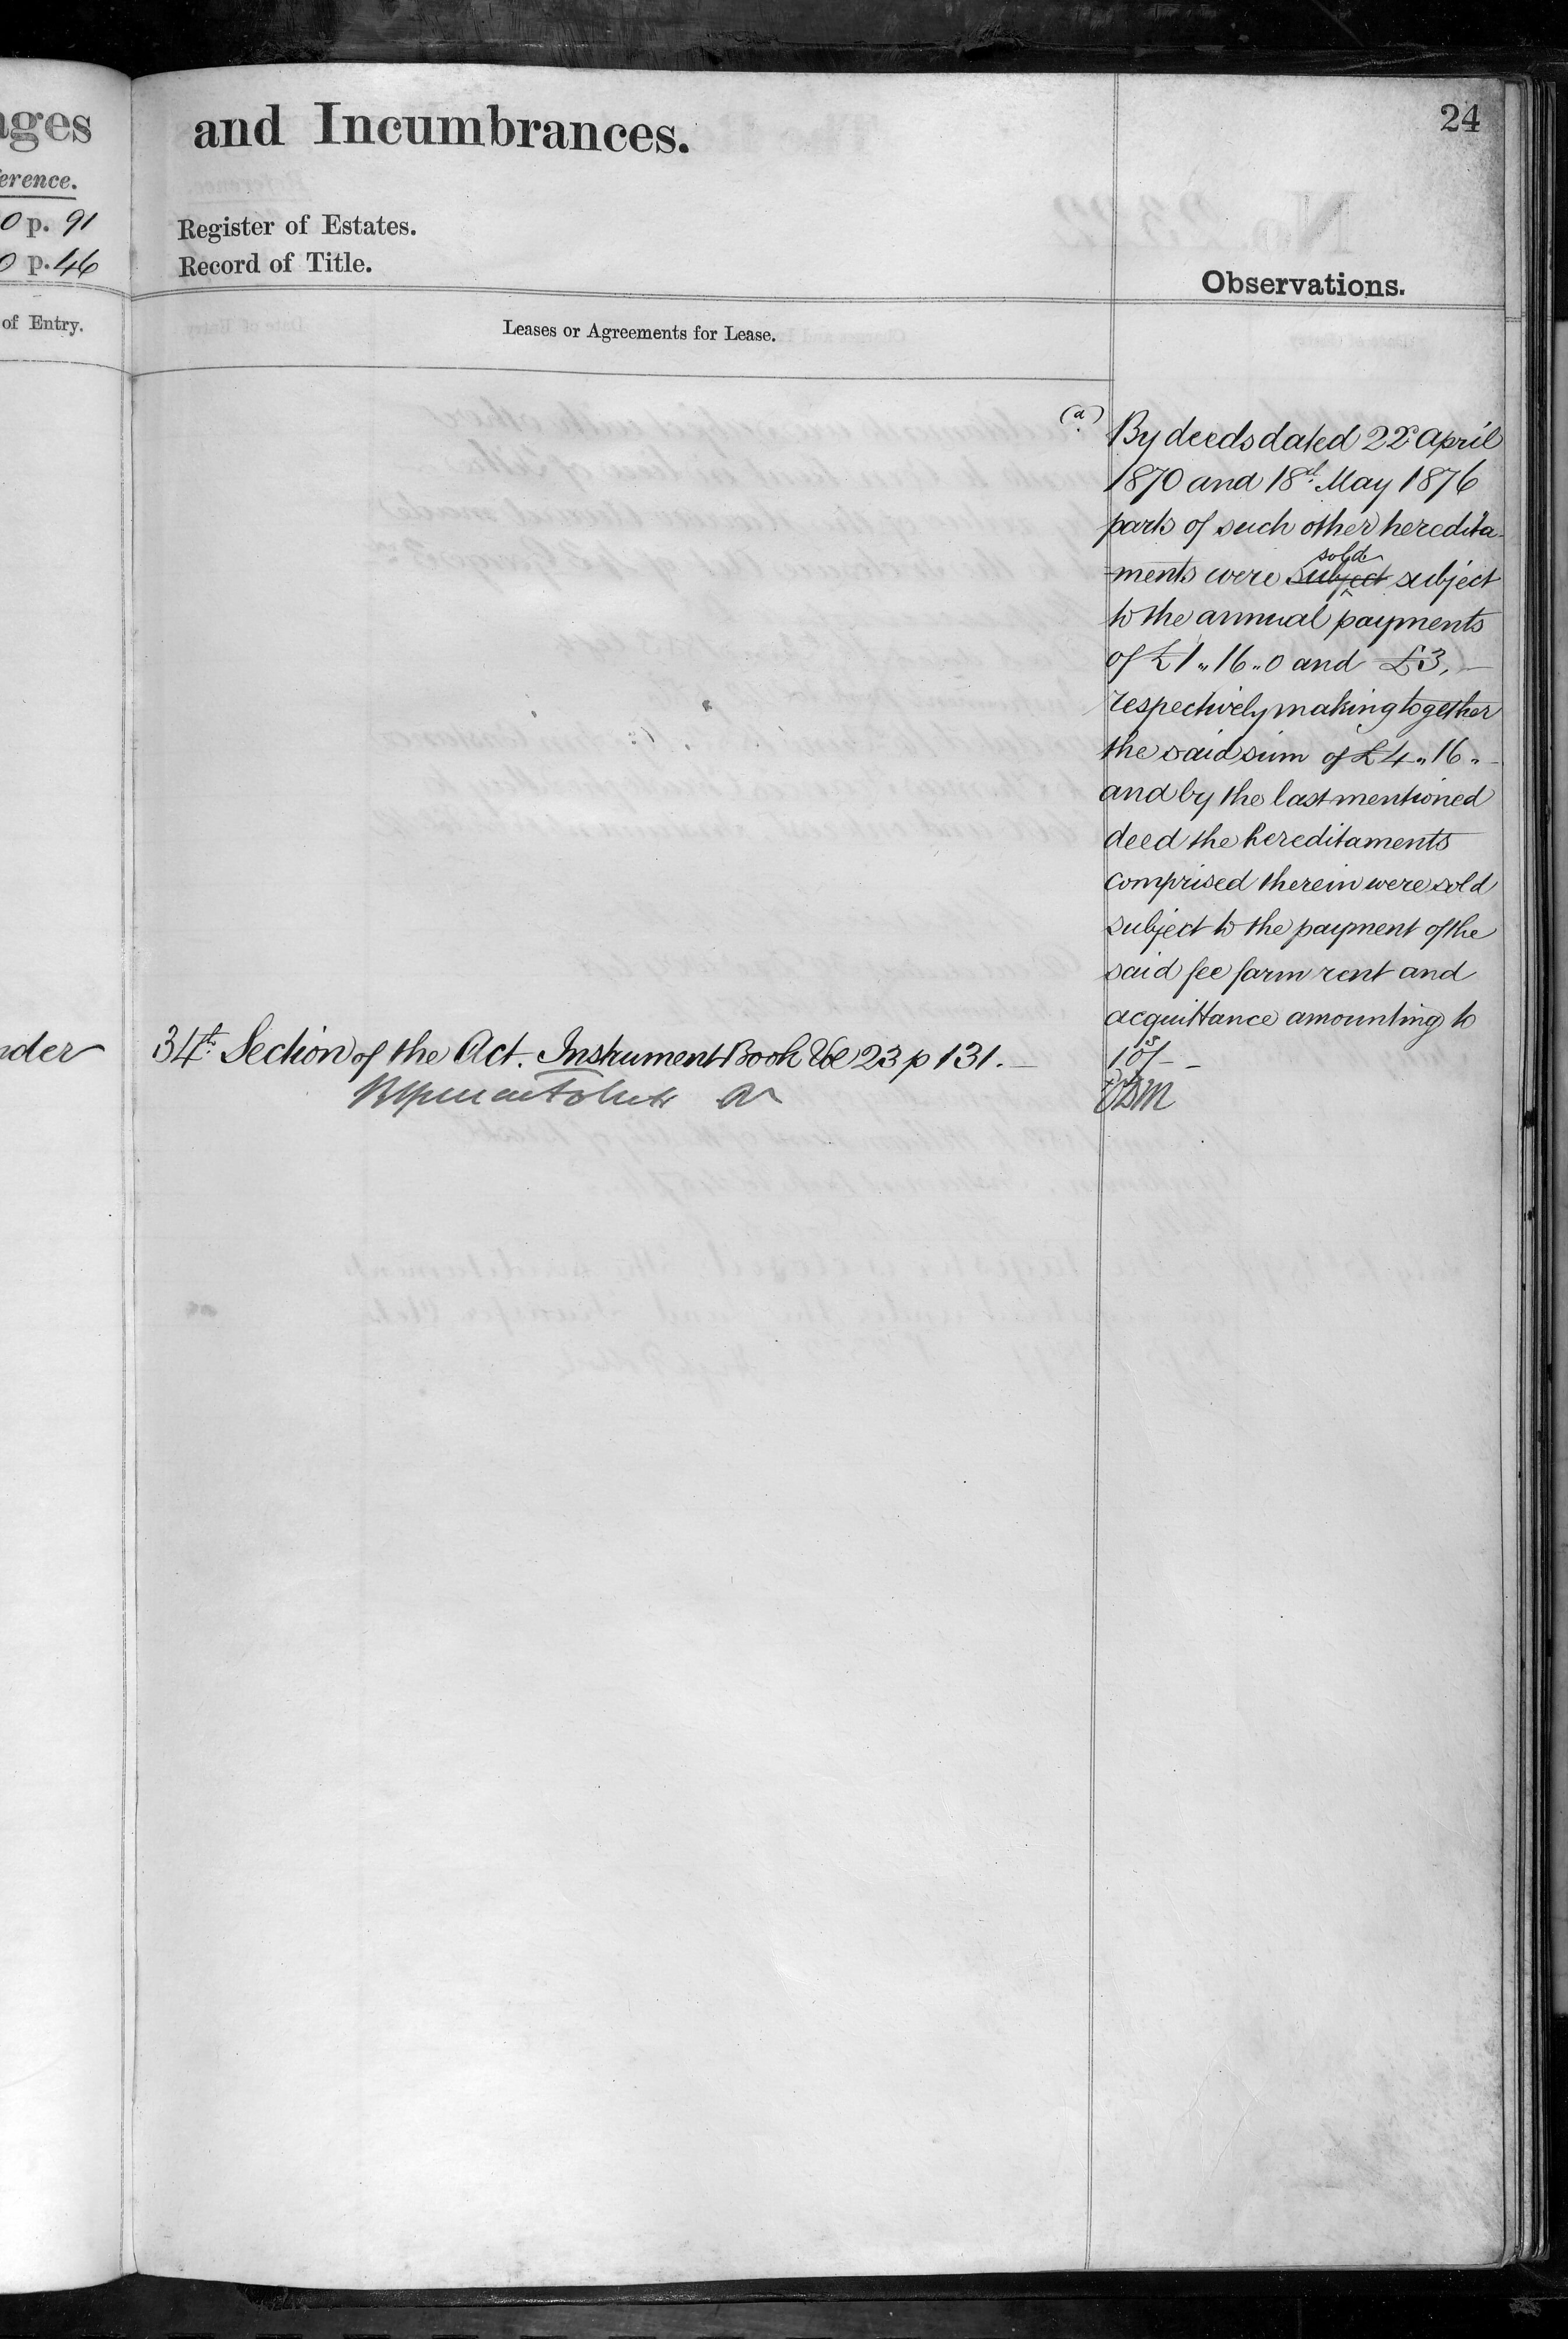 ages
and Incumbrances.
24
erence.
0 p. 91
Register of Estates.
0 p. 46
Record of Title.
Observations.
of Entry.
Leases or Agreements for Lease.
(a) By deeds dated 22d April
1870 and 18th May 1876
parts of such other heredita-
-ments were subject sold subject
to the annual payments
of £1 " 16 " 0 and £3, —
respectively making together
the said sum of £4 " 16 " -
and by the last mentioned
deed the hereditaments
comprised therein were sold
subject to the payment of the
said fee farm rent and
acquittance amounting to
10s/- -
nder 34th Section of the Act. Instrument Book Vol 23 p 131. —